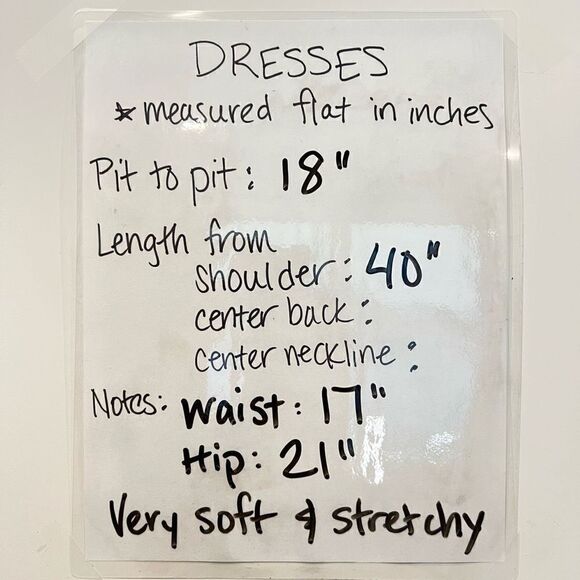 DRESSES
* measured flat in inches
Pit to pit: 18"
Length from
shoulder: 40"
center back:
center neckline:
Notes: Waist: 17"
Hip: 21"
Very soft & stretchy